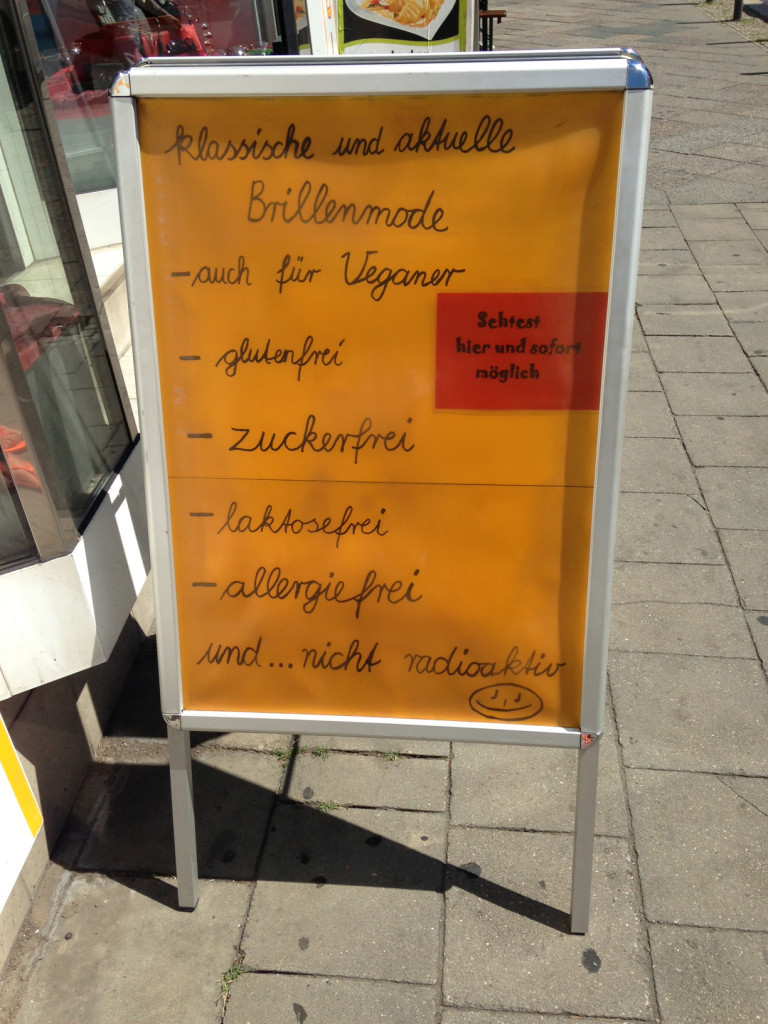 klassische und aktuelle
Brillenmode
- auch für Veganer
- glutenfrei
Sehtest
hier und sofort
möglich
- zuckerfrei
- laktosefrei
- allergiefrei
und... nicht radioaktiv